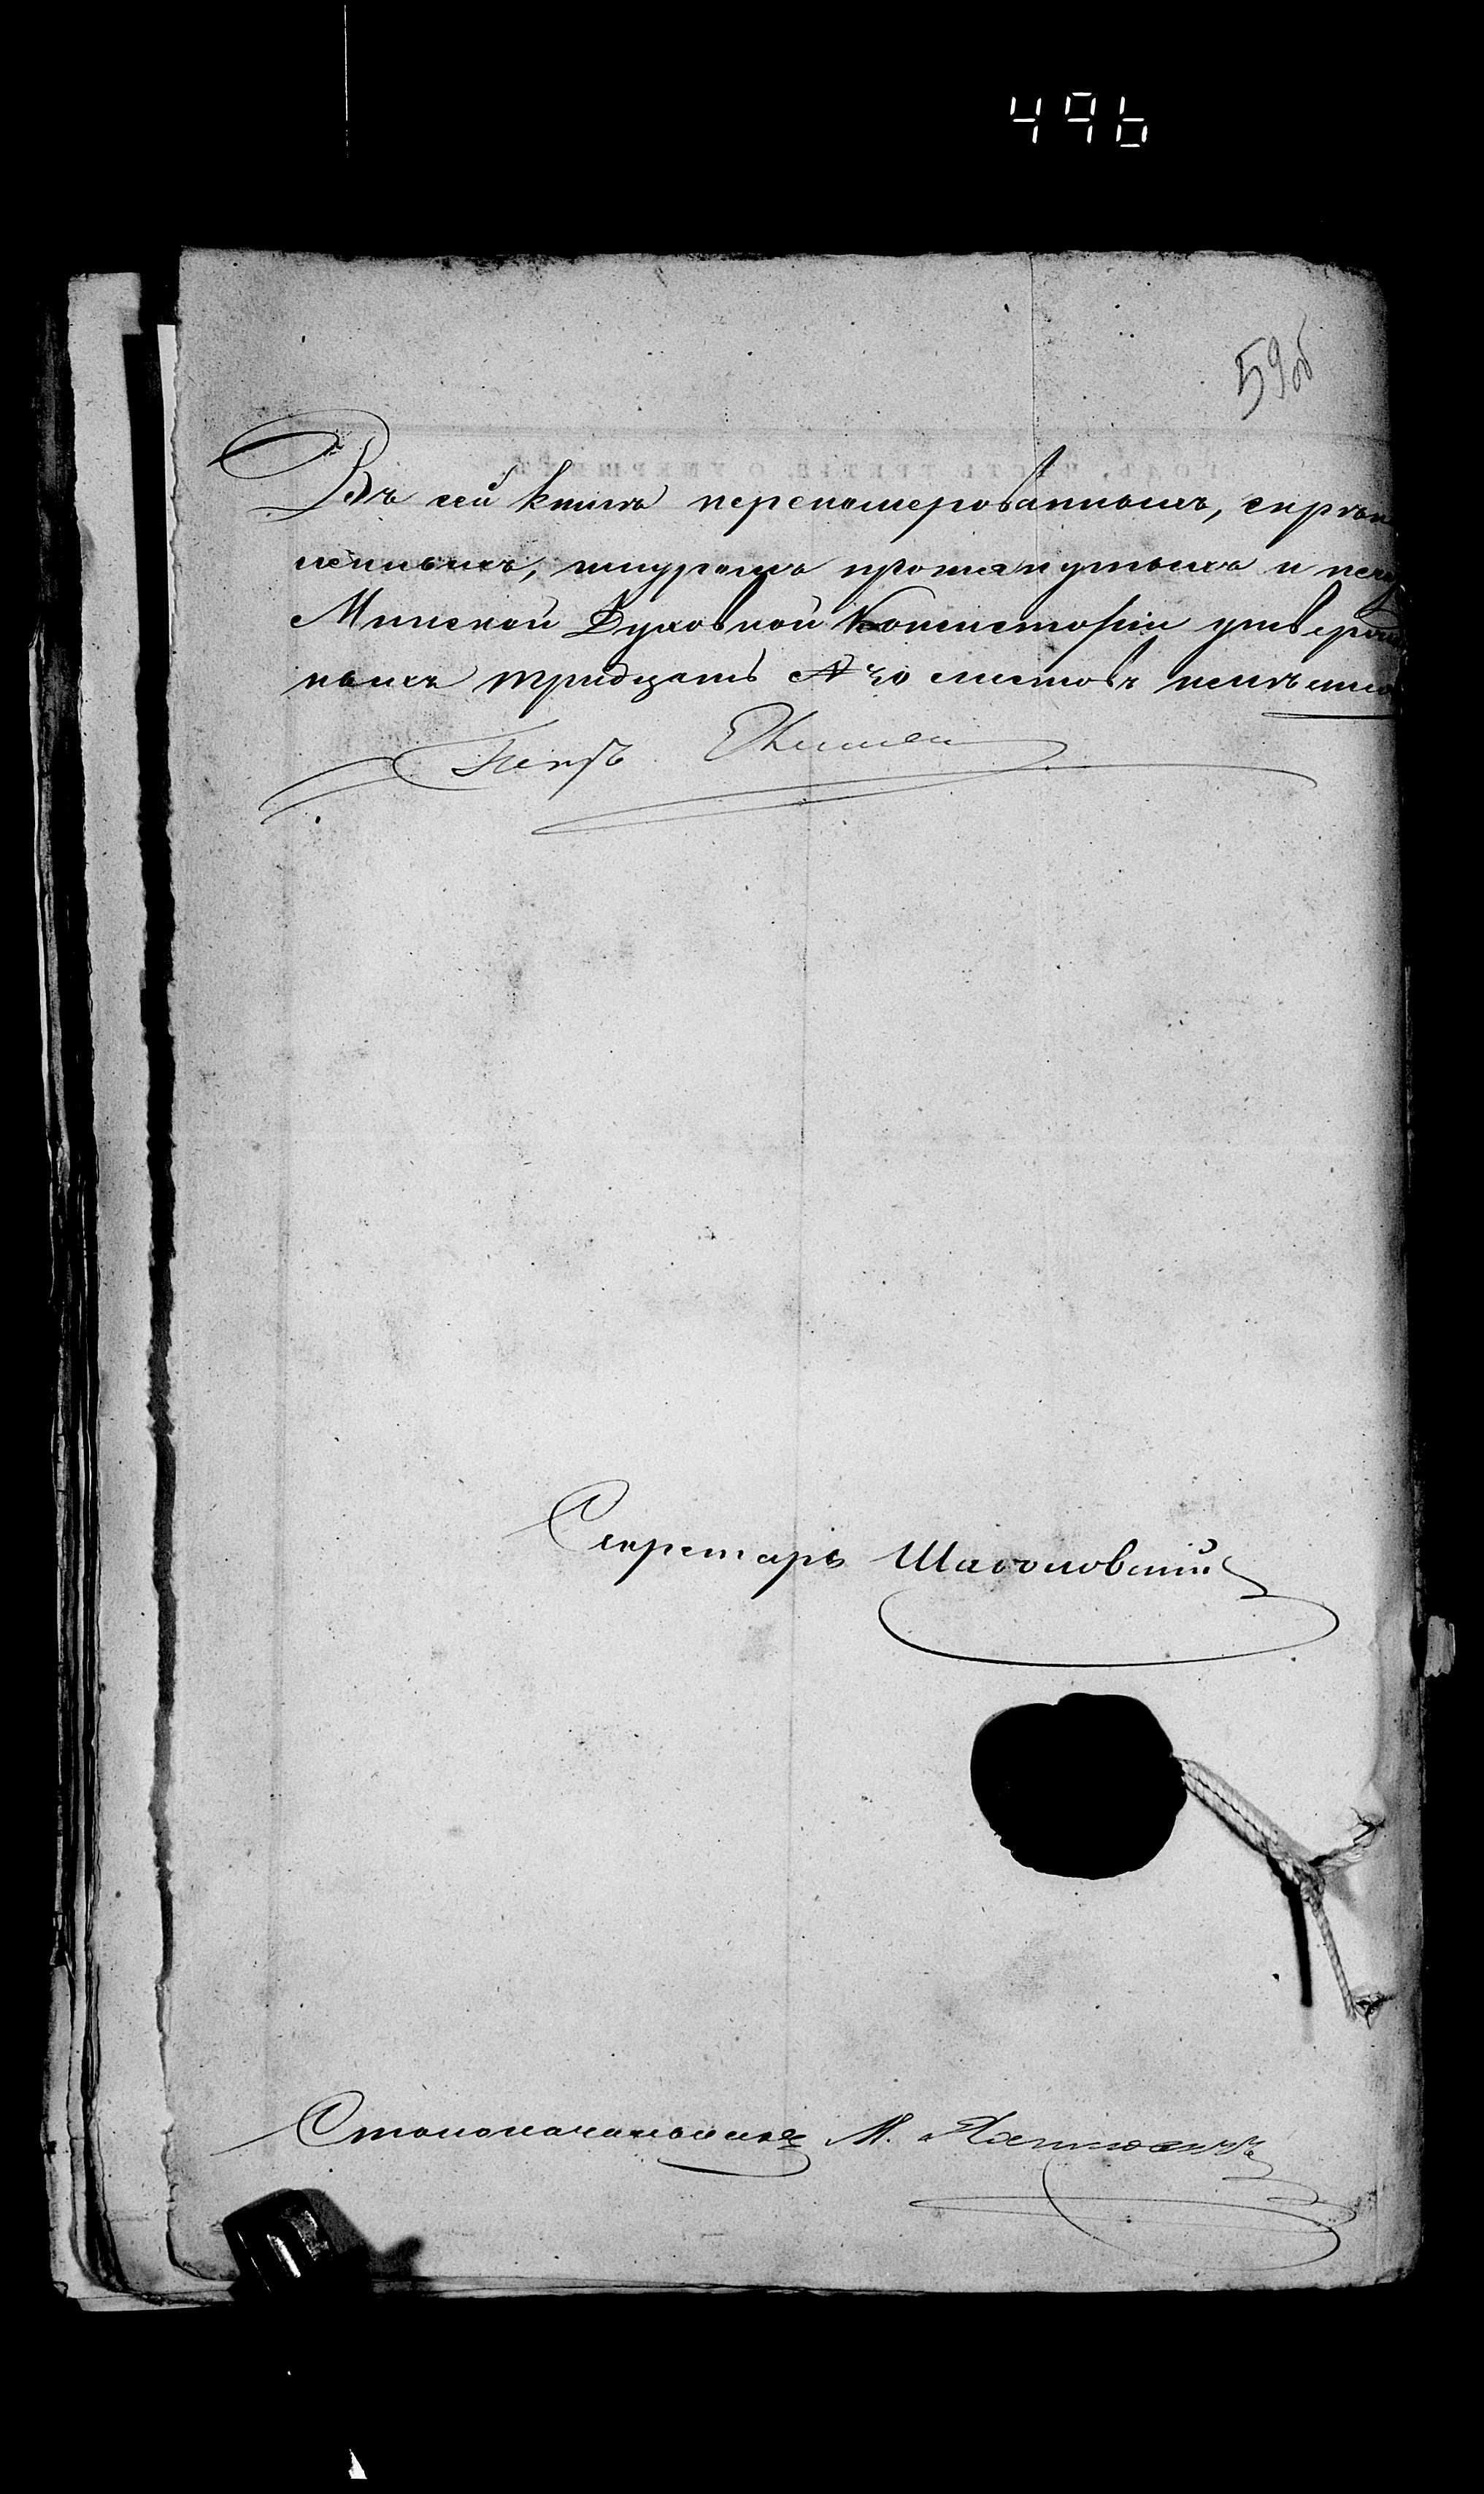 496
59 об
Въ сей книгѣ перенумерованныхъ, скрѣп
ленныхъ, шнуромъ протянутыхъ и печ
Минской Духовной Консисторіи утвержд
ныхъ тридцать № 30 листовъ
Секретарь Шаболовскій
Столоначальникъ М.